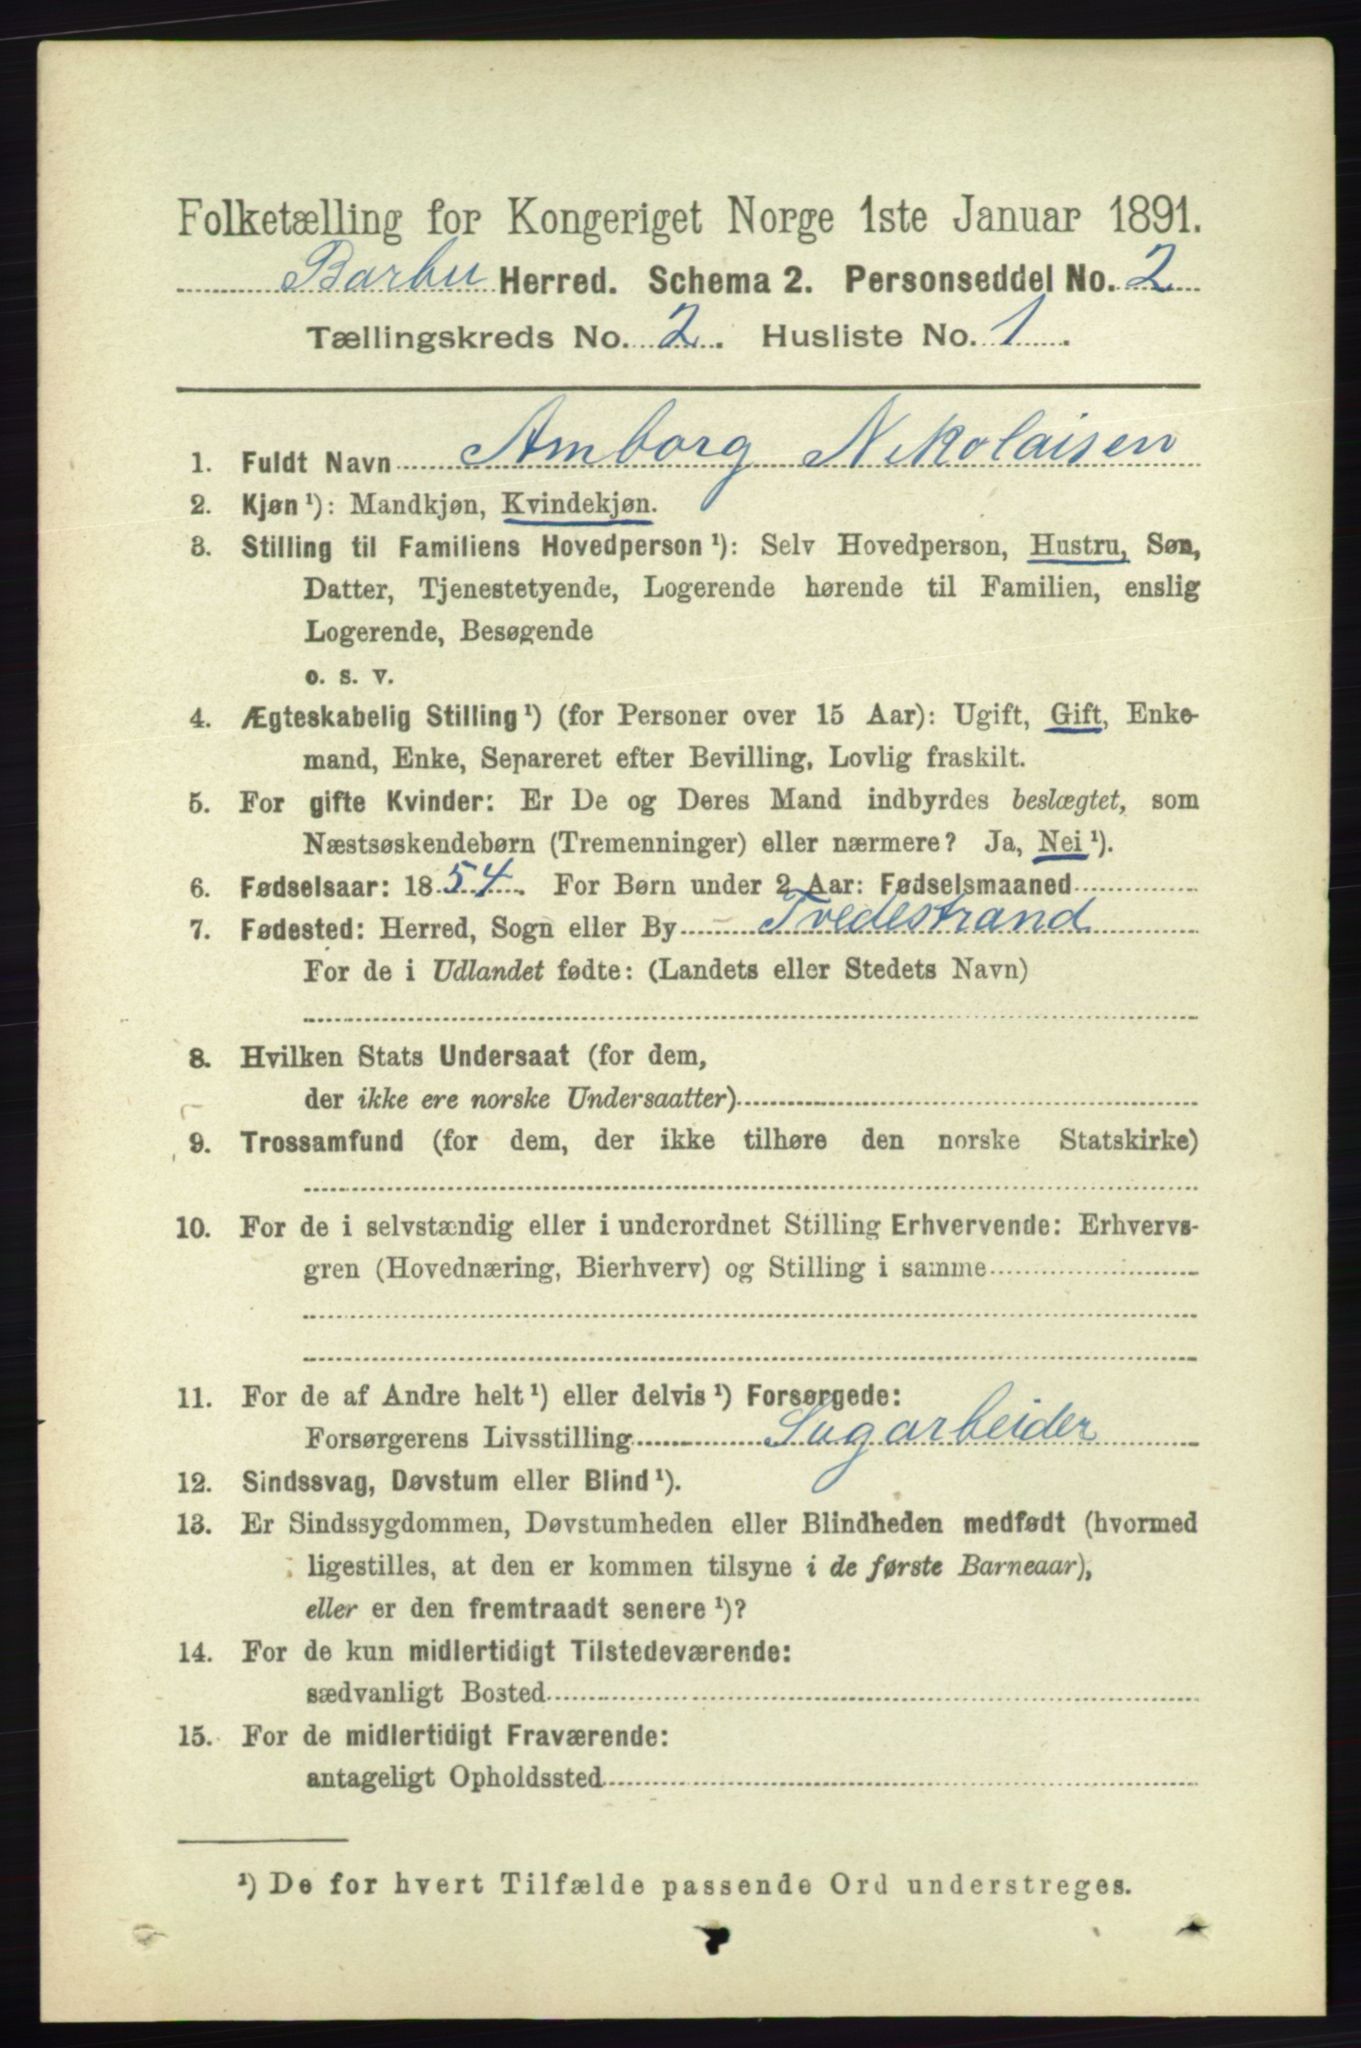 Folketælling for Kongeriget Norge 1ste Januar 1891.
Barbu Herred. Schema 2. Personseddel No. 2
Tællingskreds No. 2. Husliste No. 1.
1. Fuldt Navn Amborg Nikolaisen
2. Kjøn ¹): Mandkjøn, Kvindekjøn.
3. Stilling til Familiens Hovedperson ¹): Selv Hovedperson, Hustru, Søn,
Datter, Tjenestetyende, Logerende hørende til Familien, enslig
Logerende, Besøgende
o. s. v.
4. Ægteskabelig Stilling ¹) (for Personer over 15 Aar): Ugift, Gift, Enke-
mand, Enke, Separeret efter Bevilling, Lovlig fraskilt.
5. For gifte Kvinder: Er De og Deres Mand indbyrdes beslægtet, som
Næstsøskendebørn (Tremenninger) eller nærmere? Ja, Nei ¹).
6. Fødselsaar: 1854. For Børn under 2 Aar: Fødselsmaaned
7. Fødested: Herred, Sogn eller By Tvedestrand
For de i Udlandet fødte: (Landets eller Stedets Navn)
8. Hvilken Stats Undersaat (for dem,
der ikke ere norske Undersaatter)
9. Trossamfund (for dem, der ikke tilhøre den norske Statskirke)
10. For de i selvstændig eller i underordnet Stilling Erhvervende: Erhvervs-
gren (Hovednæring, Bierhverv) og Stilling i samme
11. For de af Andre helt ¹) eller delvis ¹) Forsørgede:
Forsørgerens Livsstilling Sagarbeider
12. Sindssvag, Døvstum eller Blind ¹).
13. Er Sindssygdommen, Døvstumheden eller Blindheden medfødt (hvormed
ligestilles, at den er kommen tilsyne i de første Barneaar),
eller er den fremtraadt senere ¹)?
14. For de kun midlertidigt Tilstedeværende:
sædvanligt Bosted
15. For de midlertidigt Fraværende:
antageligt Opholdssted
¹) De for hvert Tilfælde passende Ord understreges.